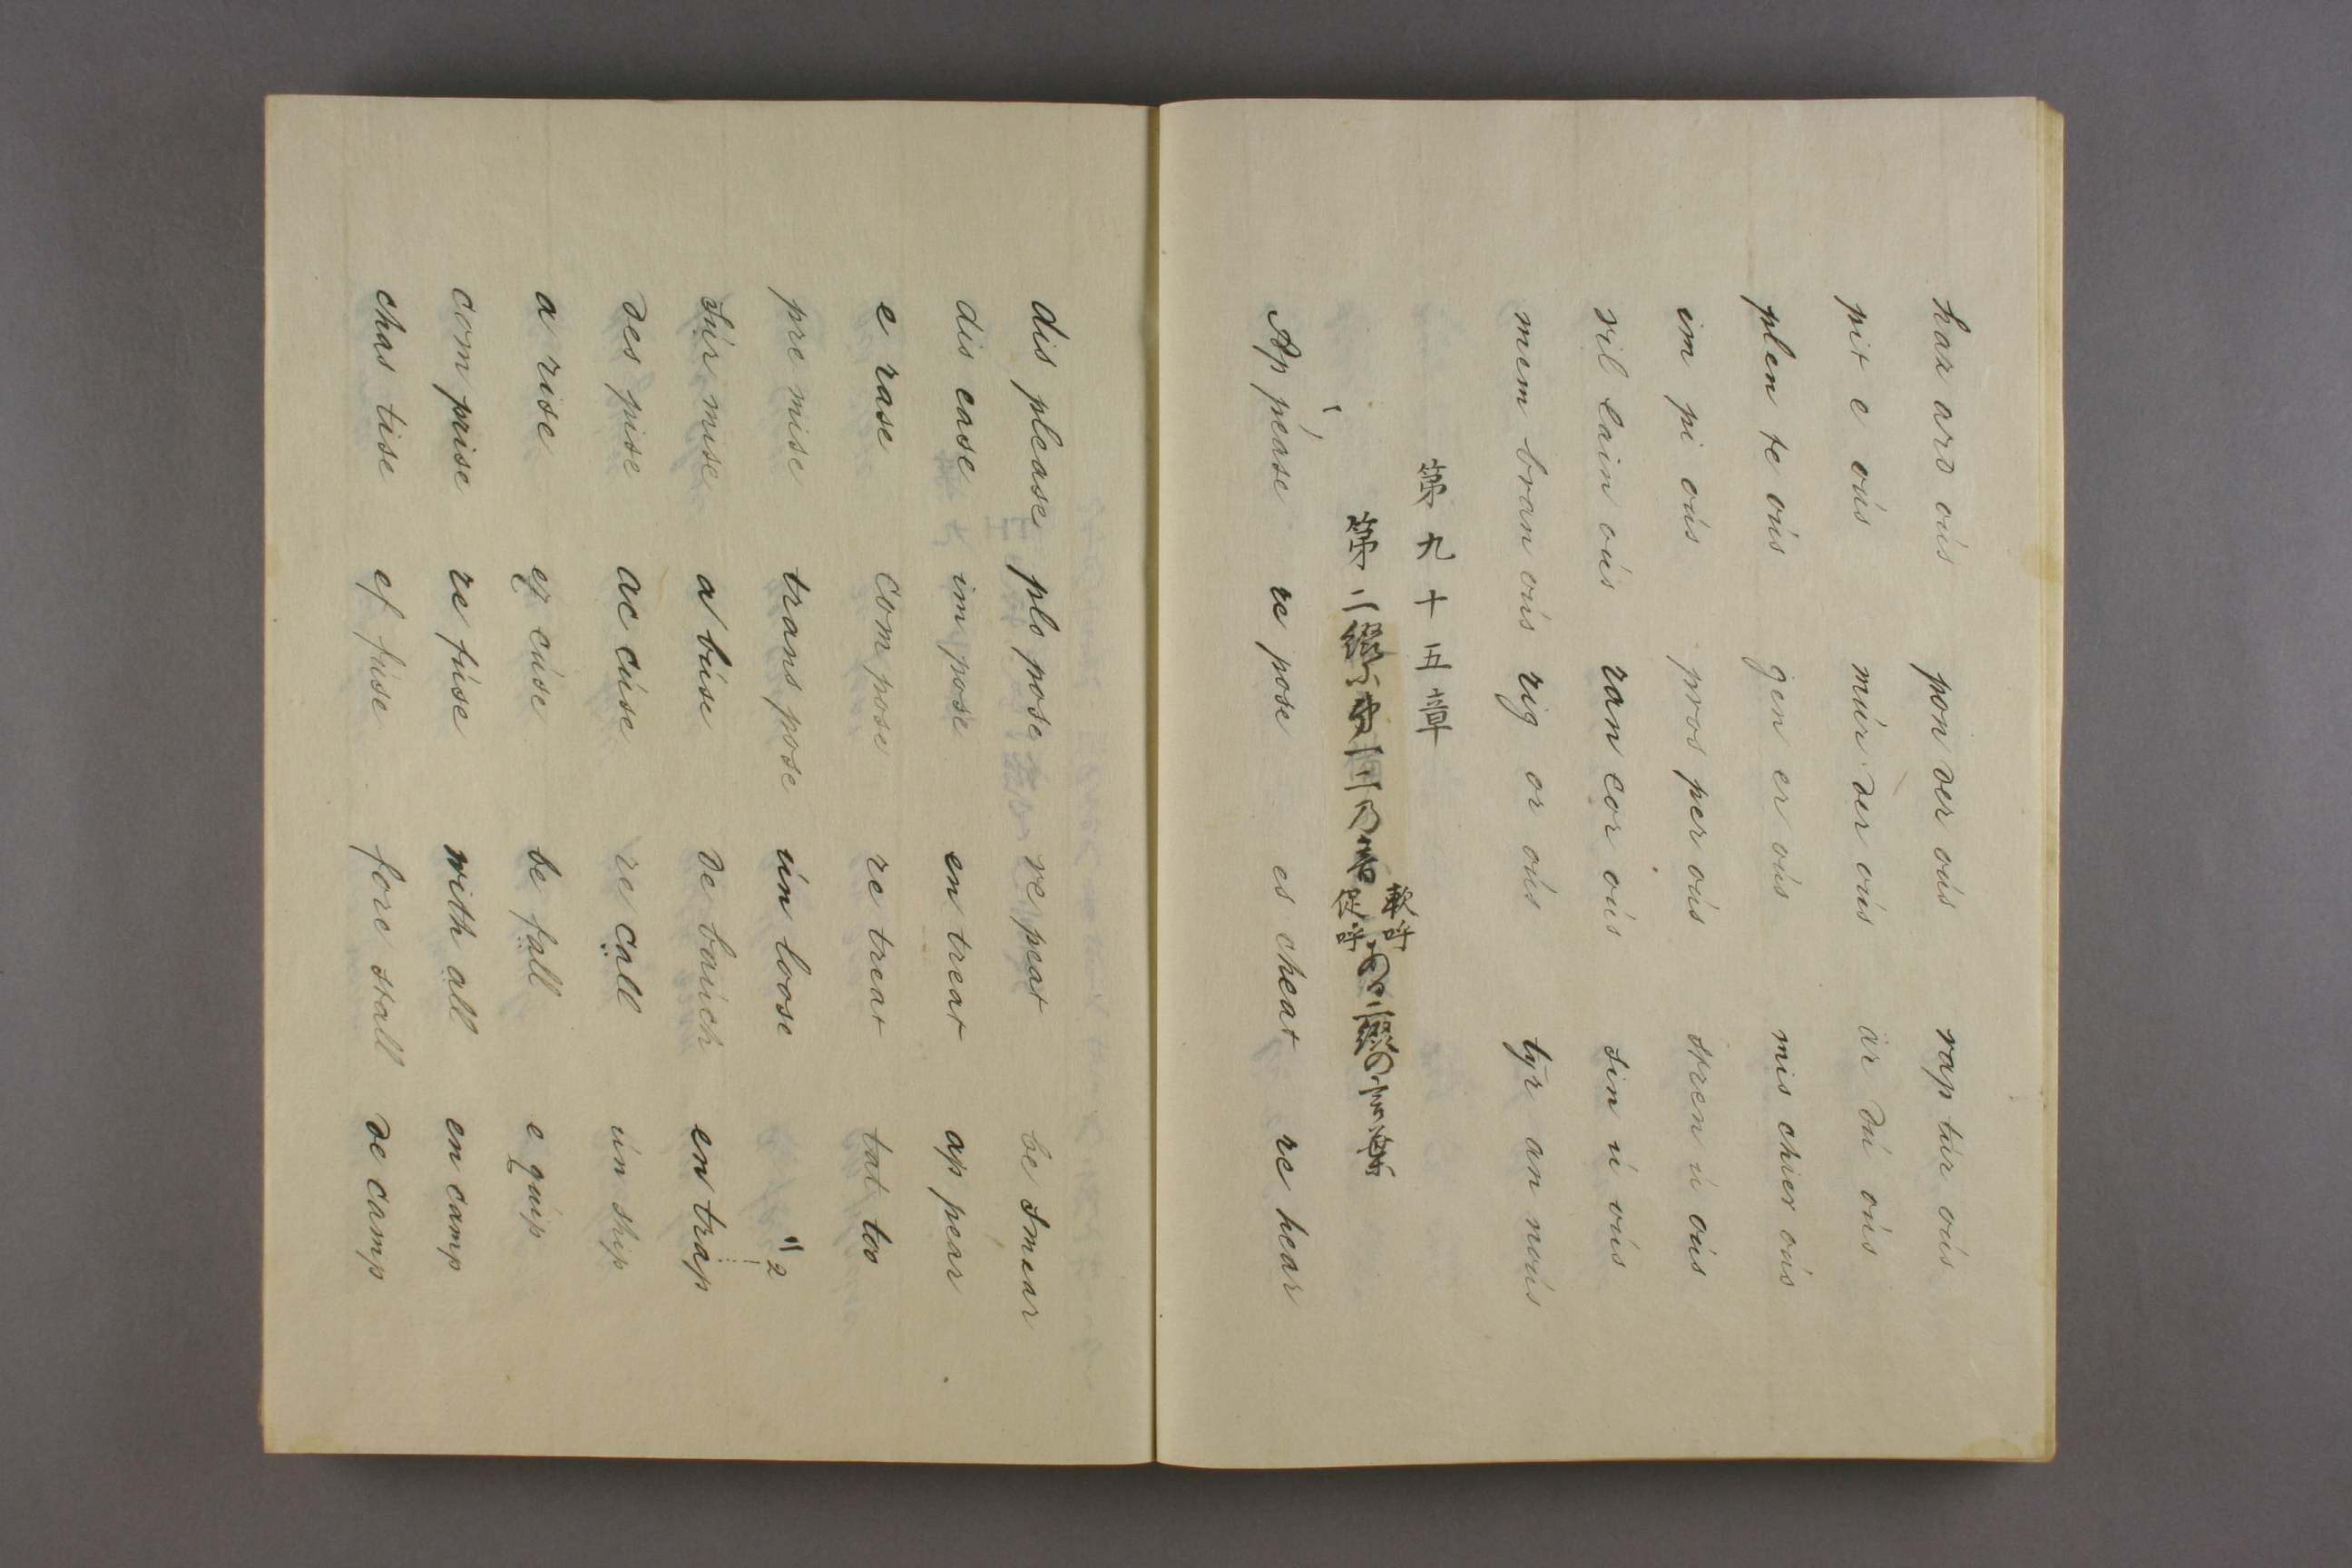 haz ard ous pon der ous rap tur ous
pit e ous mur der ous ar du ous
plen te ous gen er ous mis chiev ous
im pi ous pros per ous stren u ous
vil lain ous ran cor ous sin u ous
mem bran ous rig or ous tyr an nous
第九十五章
軟呼
促呼
Ap pease re pose es cheat re hear
dis please pro pose re peat be smear
dis ease im pose en treat ap pear
e rase com pose re treat tat too
pre mise trans pose un loose "2
sur mise a buse de bauch en trap
des pise ac cuse re call un ship
a rise ex cuse be fall e quip
com prise re fuse with all en camp
chas tise ef fuse fore stall de camp